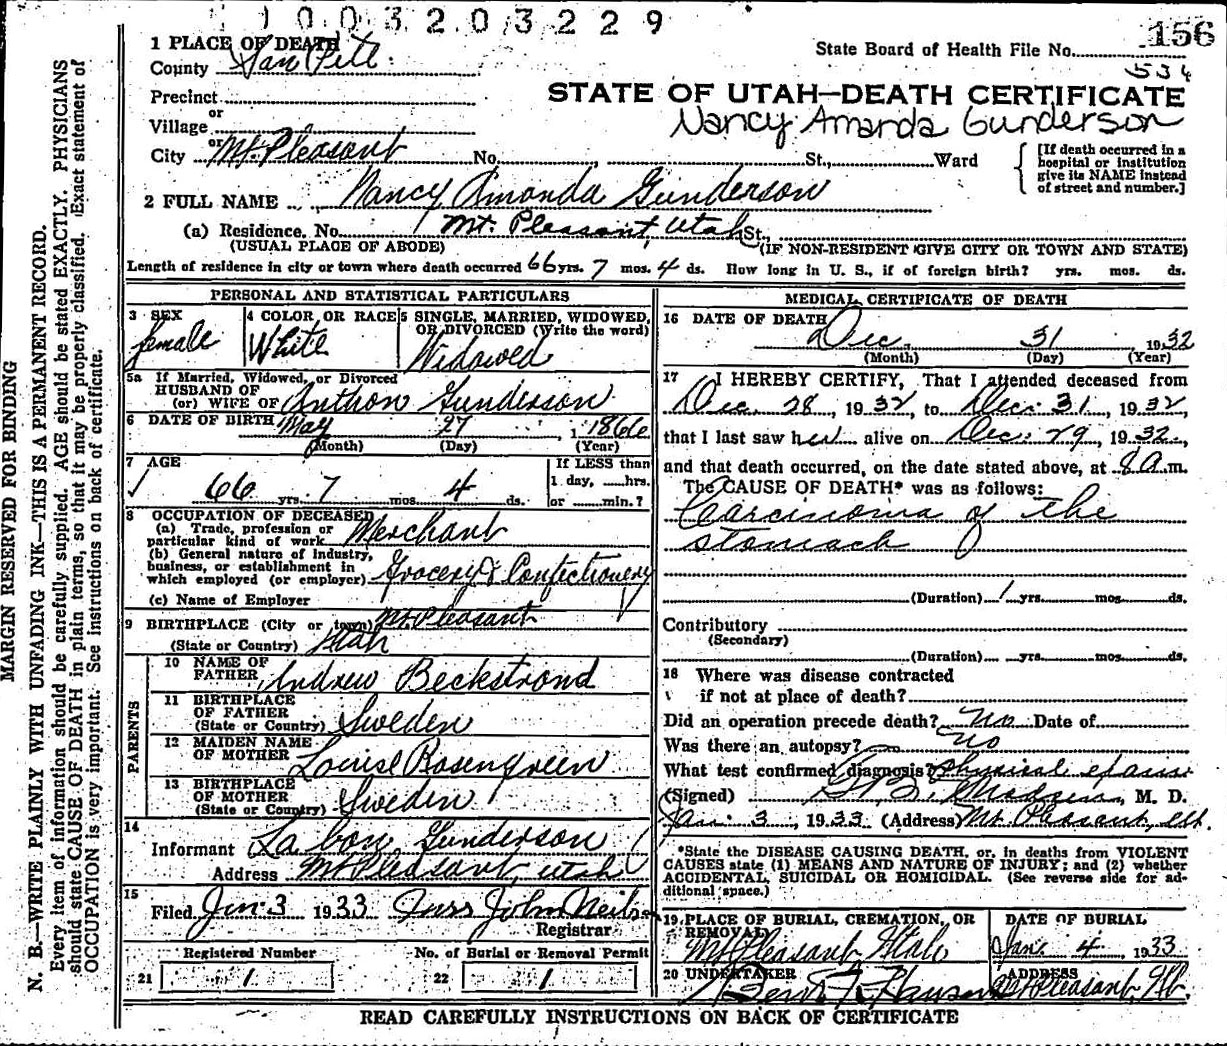 1003203229
156
State Board of Health File No.
534
1 PLACE OF DEATH
County San Pete
STATE OF UTAH—DEATH CERTIFICATE
Precinct
Nancy Amanda Gunderson
or
Village
or
City Mt. Pleasant No. St., Ward
[If death occurred in a hospital or institution give its NAME instead of street and number.]
2 FULL NAME Nancy Amanda Gunderson
(a) Residence. No. Mt. Pleasant, Utah St.,
(USUAL PLACE OF ABODE) (IF NON-RESIDENT GIVE CITY OR TOWN AND STATE)
Length of residence in city or town where death occurred 66 yrs. 7 mos. 4 ds. How long in U. S., if of foreign birth? yrs. mos. ds.
PERSONAL AND STATISTICAL PARTICULARS
3 SEX
female
4 COLOR OR RACE
White
5 SINGLE, MARRIED, WIDOWED, OR DIVORCED (Write the word)
Widowed
5a If Married, Widowed, or Divorced
HUSBAND OF
(or) WIFE OF Anthon Gunderson
6 DATE OF BIRTH May 27, 1866
(Month) (Day) (Year)
7 AGE
66 yrs. 7 mos. 4 ds.
If LESS than
1 day, hrs.
or min.?
8 OCCUPATION OF DECEASED
(a) Trade, profession or
particular kind of work Merchant
(b) General nature of industry,
business, or establishment in
which employed (or employer) Grocery & Confectionery
(c) Name of Employer
9 BIRTHPLACE (City or town) Mt. Pleasant
(State or Country) Utah
PARENTS
10 NAME OF
FATHER Andrew Beckstrond
11 BIRTHPLACE
OF FATHER
(State or Country) Sweden
12 MAIDEN NAME
OF MOTHER Louise Rosengreen
13 BIRTHPLACE
OF MOTHER
(State or Country) Sweden
14
Informant La bon Gunderson
Address Mt Pleasant, Utah
15
Filed Jan 3 1933 John Neilson
Registrar
Registered Number No. of Burial or Removal Permit
21 1 22 1
MEDICAL CERTIFICATE OF DEATH
16 DATE OF DEATH
Dec. 31, 1932
(Month) (Day) (Year)
17 I HEREBY CERTIFY, That I attended deceased from
Dec. 28, 1932, to Dec. 31, 1932,
that I last saw her alive on Dec. 29, 1932,
and that death occurred, on the date stated above, at 8 a.m.
The CAUSE OF DEATH* was as follows:
Carcinoma of the
stomach
(Duration) 1 yrs. mos. ds.
Contributory
(Secondary)
(Duration) yrs. mos. ds.
18 Where was disease contracted
if not at place of death?
Did an operation precede death? No Date of
Was there an autopsy? no
What test confirmed diagnosis? Physical exam
(Signed) M. D.
Jan. 3, 1933 (Address) Mt. Pleasant, Ut.
*State the DISEASE CAUSING DEATH, or, in deaths from VIOLENT
CAUSES state (1) MEANS AND NATURE OF INJURY; and (2) whether
ACCIDENTAL, SUICIDAL OR HOMICIDAL. (See reverse side for ad-
ditional space.)
19 PLACE OF BURIAL, CREMATION, OR
REMOVAL
Mt Pleasant Utah
DATE OF BURIAL
Jan. 4, 1933
20 UNDERTAKER
Hansen
ADDRESS
Mt Pleasant, Ut.
READ CAREFULLY INSTRUCTIONS ON BACK OF CERTIFICATE
MARGIN RESERVED FOR BINDING
N. B.—WRITE PLAINLY WITH UNFADING INK—THIS IS A PERMANENT RECORD.
Every item of information should be carefully supplied. AGE should be stated EXACTLY. PHYSICIANS
should state CAUSE OF DEATH in plain terms, so that it may be properly classified. Exact statement of
OCCUPATION is very important. See instructions on back of certificate.